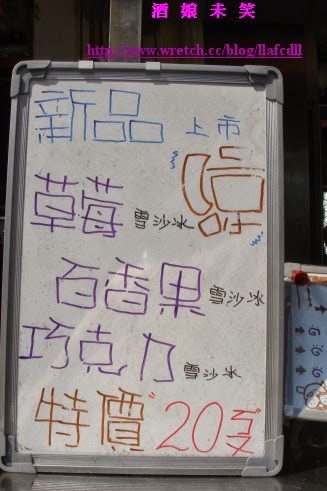 酒娘未笑
http://www.wretch.cc/blog/llafcdll
新品 上市
草莓 雪沙冰
百香果 雪沙冰
巧克力 雪沙冰
特價 20